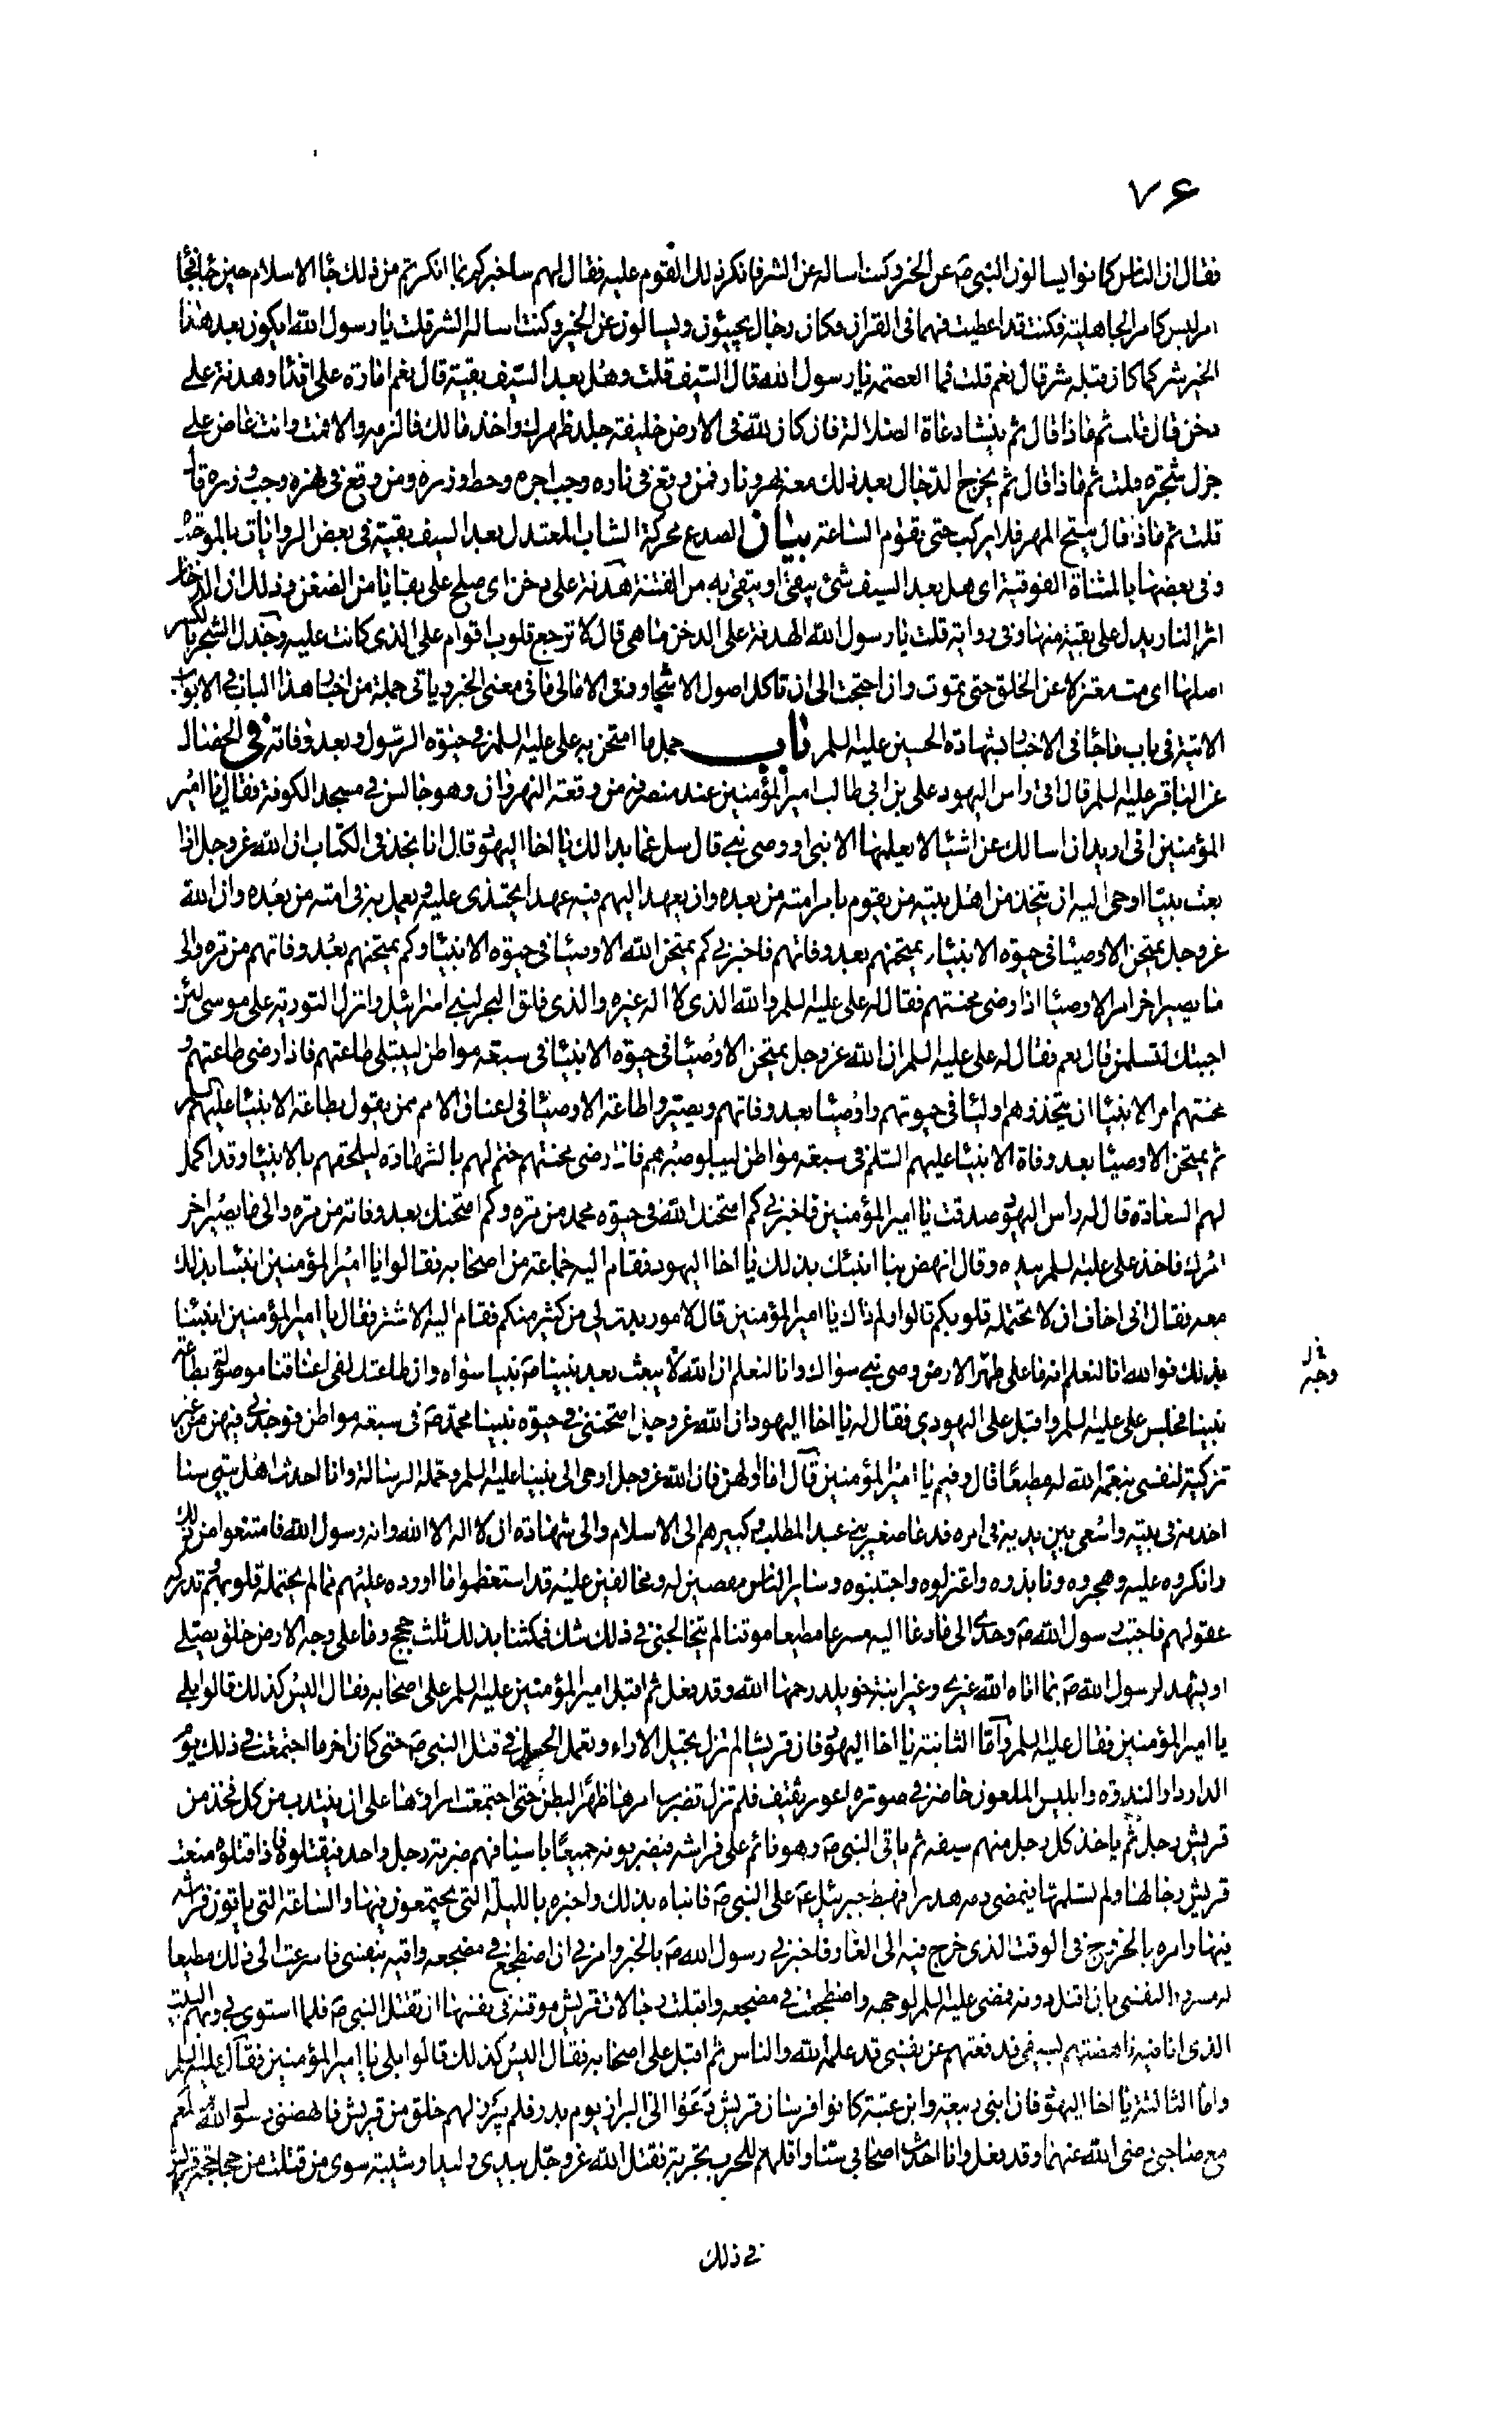 ۷۶
فقال ان الناس كانوا يسالون النبي ص عن الخير وكنت اساله عن الشر فانكر ذلك القوم عليه فقال لهم ساخبركم بما انكرتم من ذلك جاء الاسلام حين جاء فجاء
امر ليس كامر الجاهلية فكنت قد اعطيت فهما في القران فكان رجال يجيئون ويسالون عن الخير وكنت اساله الشر قلت يا رسول الله ايكون بعد هذا
الخير شر كما كان قبله شر قال نعم قلت فما العصمة يا رسول الله قال السيف قلت وهل بعد السيف بقية قال نعم امارة على اقذاء وهدنة على
دخن قال قلت ثم ماذا قال ثم ينشا دعاة الضلالة فان كان لله في الارض خليفة جلد ظهرك واخذ مالك فالزمه والا فمت وانت عاض على
جزل شجرة قلت ثم ماذا قال ثم يخرج الدجال بعد ذلك معه نهر ونار فمن وقع في ناره وجب اجره وحط وزره ومن وقع في نهره وجب وزره
قلت ثم ماذا قال ينتج المهر فلا يركب حتى تقوم الساعة بيان الصدع محركة الشاب المعتدل بعد السيف بقية في بعض الروايات بالموحدة
وفي بعضها بالمثناة الفوقية اى هل بعد السيف شئ يبقى او يتقى به من الفتنة هدنة على دخن اى صلح على بقايا من الضغن وذلك ان الدخان
اثر النار يدل على بقية منها وفي رواية قلت يا رسول الله الهدنة على الدخن ما هي قال لا ترجع قلوب اقوام على الذي كانت عليه وجذل الشجر بالكسر
اصلها اى مت معتزلا عن الخلق حتى تموت وان احتجت الى ان تاكل اصول الاشجار وفي الامالي ما في معنى الخبر وياتي جملة من اخبار هذا الباب في الابواب
الاتية في باب ما جاء في الاخبار بشهادة الحسين عليه السلم باب جمل ما امتحن به علي عليه السلم في حيوة الرسول وبعد وفاته في الخصال
عن الباقر عليه السلم قال اتى راس اليهود علي بن ابي طالب امير المؤمنين عند منصرفه من وقعة النهروان وهو جالس في مسجد الكوفة فقال يا امير
المؤمنين اني اريد ان اسالك عن اشياء لا يعلمها الا نبي او وصي نبي قال سل عما بدا لك يا اخا اليهود قال انا نجد في الكتاب ان الله عز وجل اذا
بعث نبيا اوحى اليه ان يتخذ من اهل بيته من يقوم بامر امته من بعده وان يعهد اليهم فيه عهدا يحتذى عليه ويعمل به في امته من بعده وان الله
عز وجل يمتحن الاوصياء في حيوة الانبياء ويمتحنهم بعد وفاتهم فاخبرني كم يمتحن الله الاوصياء في حيوة الانبياء وكم يمتحنهم بعد وفاتهم من مرة والى
ما يصير اخر امر الاوصياء اذا رضي محنتهم فقال له علي عليه السلم والله الذي لا اله غيره والذي فلق البحر لبني اسرائيل وانزل التورية على موسى لئن
اجبتك لتسلمن قال نعم فقال له علي عليه السلم ان الله عز وجل يمتحن الاوصياء في حيوة الانبياء في سبعة مواطن ليبتلي طاعتهم فاذا رضي طاعتهم و
محنتهم امر الانبياء ان يتخذوهم اولياء في حيوتهم واوصياء بعد وفاتهم ويصير طاعة الاوصياء في اعناق الامم ممن يقول بطاعة الانبياء عليهم السلم
ثم يمتحن الاوصياء بعد وفاة الانبياء عليهم السلم في سبعة مواطن ليبلو صبرهم فاذا رضي محنتهم ختم لهم بالشهادة ليلحقهم بالانبياء وقد اكمل
لهم السعادة قال له راس اليهود صدقت يا امير المؤمنين فاخبرني كم امتحنك الله في حيوة محمد من مرة وكم امتحنك بعد وفاته من مرة والى ما يصير اخر
امرك فاخذ علي عليه السلم بيده وقال انهض بنا انبئك بذلك يا اخا اليهود فقام اليه جماعة من اصحابه فقالوا يا امير المؤمنين انبئنا بذلك
معه فقال اني اخاف ان لا تحتمله قلوبكم قالوا ولم ذاك يا امير المؤمنين قال لامور بدت لي من كثير منكم فقام اليه الاشتر فقال يا امير المؤمنين انبئنا
بذلك فوالله انا لنعلم انه ما على ظهر الارض وصي نبي سواك وانا لنعلم ان الله لا يبعث بعد نبينا ص نبيا سواه وان طاعتك لفي اعناقنا موصولة بطاعة
نبينا فجلس علي عليه السلم واقبل على اليهودي فقال له يا اخا اليهود ان الله عز وجل امتحنني في حيوة نبينا محمد ص في سبعة مواطن فوجدني فيهن من غير
تزكية لنفسي بنعمة الله له مطيعا قال وفيم يا امير المؤمنين قال اما اولهن فان الله عز وجل اوحى الى نبينا عليه السلم وحمله الرسالة وانا احدث اهل بيتي سنا
اخدمه في بيته واسعى بين يديه في امره فدعا صغير بني عبد المطلب وكبيرهم الى الاسلام والى شهادة ان لا اله الا الله وانه رسول الله فامتنعوا من ذلك
وانكروه عليه وهجروه ونابذوه واعتزلوه واجتنبوه وساير الناس مقصين له ومخالفين عليه قد استعظموا ما اورده عليهم مما لم يحتمله قلوبهم وتدركه
عقولهم فاجبت رسول الله ص وحدي الى ما دعا اليه مسرعا مطيعا موقنا لم يتخالجني في ذلك شك فمكثنا بذلك ثلث حجج وما على وجه الارض خلق يصلي
او يشهد لرسول الله ص بما اتاه الله غيري وغير ابنة خويلد رحمها الله وقد فعل ثم اقبل امير المؤمنين عليه السلم على اصحابه فقال اليس كذلك قالوا بلى
يا امير المؤمنين فقال عليه السلم واما الثانية يا اخا اليهود فان قريشا لم تزل تخيل الاراء وتعمل الحيل في قتل النبي ص حتى كان اخر ما اجتمعت في ذلك يوم
الدار دار الندوة وابليس الملعون حاضر في صورة اعور ثقيف فلم تزل تضرب امرها ظهرا لبطن حتى اجتمعت اراؤها على ان ينتدب من كل فخذ من
قريش رجل ثم ياخذ كل رجل منهم سيفه ثم ياتي النبي ص وهو نائم على فراشه فيضربونه جميعا باسيافهم ضربة رجل واحد فيقتلوه فاذا قتلوه منعت
قريش رجالها ولم تسلمها فيمضي دمه هدرا فهبط جبرئيل ع على النبي ص فانباه بذلك واخبره بالليلة التي يجتمعون فيها والساعة التي ياتون فراشه
فيها وامره بالخروج في الوقت الذي خرج فيه الى الغار فاخبرني رسول الله ص بالخبر وامرني ان اضطجع في مضجعه واقيه بنفسي فاسرعت الى ذلك مطيعا
له مسرورا لنفسي بان اقتل دونه فمضى عليه السلم لوجهه واضطجعت في مضجعه واقبلت رجالات قريش موقنة في نفسها ان تقتل النبي ص فلما استوى بي وبهم البيت
الذي انا فيه ناهضتهم بسيفي فدفعتهم عن نفسي قد علمه الله والناس ثم اقبل على اصحابه فقال اليس كذلك قالوا بلى يا امير المؤمنين فقال عليه السلم
واما الثالثة يا اخا اليهود فان ابني ربيعة وابن عتبة كانوا فرسان قريش دعوا الى البراز يوم بدر فلم يبرز لهم خلق من قريش فانهضني رسول الله ص
مع صاحبي رضي الله عنهما وقد فعل وانا احدث اصحابي سنا واقلهم للحرب تجربة فقتل الله عز وجل بيدي وليدا وشيبة سوى من قتلت من جحاجحة قريش
في ذلك